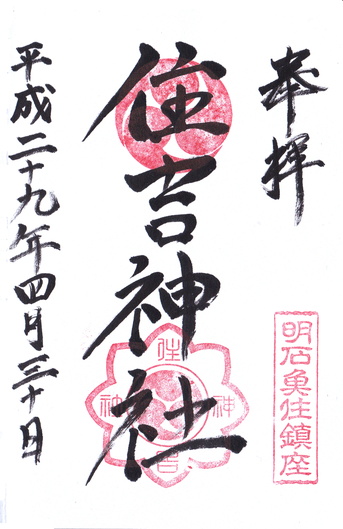 奉拝
明石魚住鎮座
住吉神社
住吉神社
平成二十九年四月三十日